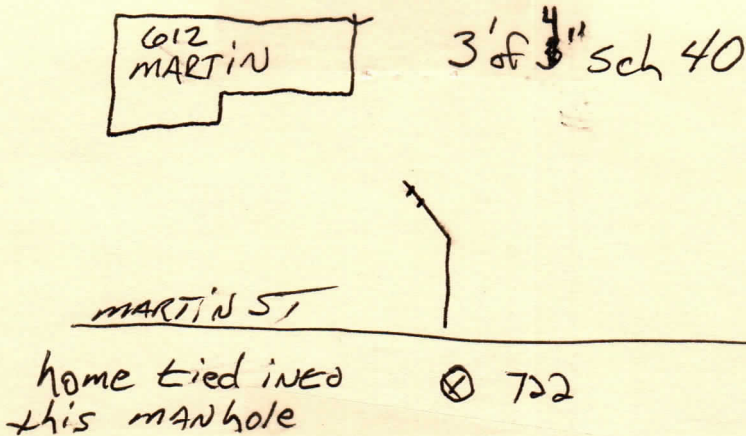 612
MARTIN
3' of 4" Sch 40
MARTIN ST
home tied into
this MANhole
722